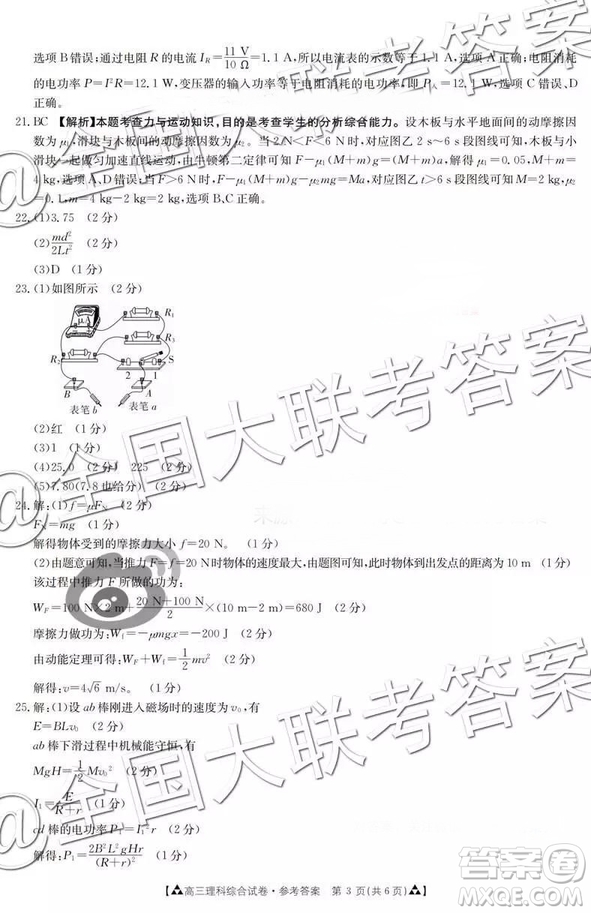 选项B错误;通过电阻R的电流I_R=11 V/10 Ω=1.1 A,所以电流表的示数等于1.1 A,选项C错误;电阻消耗
的电功率P=I²R=12.1 W,变压器的输入功率等于电阻消耗的功率,即P入=12.1 W,选项D
正确。
21.BC 【解析】本题考查力与运动知识,目的是考查学生的分析综合能力。设木板与水平地面间的动摩擦因
数为μ₁,滑块与木板间的动摩擦因数为μ₂,当2 N<F<6 N时,对应图乙2 s~6 s段图线可知,木板与小
滑块一起做匀加速直线运动,由牛顿第二定律可知F-μ₁(M+m)g=(M+m)a,解得μ₁=0.05,M+m=
4 kg,选项A、D错误;当F>6 N时,F-μ₁(M+m)g-μ₂mg=Ma,对应图乙t>6 s段图线可知M=2 kg,μ₂
=0.1,m=4 kg-2 kg=2 kg,选项B、C正确。
22.(1)3.75 (2分)
(2)md²/2Lt² (2分)
(3)D (1分)
23.(1)如图所示 (2分)
R₁
R₃
R₂
S
2 1
B A
表笔b 表笔a
(2)红 (1分)
(3)1 (1分)
(4)25.0 (2分) 225 (2分)
(5)7.80(7.8也给分) (2分)
24.解:(1)f=μF_N (2分)
F_N=mg (2分)
解得物体受到的摩擦力大小f=20 N。 (1分)
(2)由题意可知,当推力F=f=20 N时物体的速度最大,由题图可知,此时物体到出发点的距离为10 m (1分)
该过程中推力F所做的功为:
W_F=100 N×2 m+(20 N+100 N)/2×(10 m-2 m)=680 J (2分)
摩擦力做功为:W_f=-μmgx=-200 J (2分)
由动能定理可得:W_F+W_f=½mv² (2分)
解得:v=4√6 m/s。 (1分)
25.解:(1)设ab棒刚进入磁场时的速度为v₀,有
E=BLv₀ (2分)
ab棒下滑过程中机械能守恒,有
MgH=½Mv₀² (2分)
I₁=E/(R+r) (2分)
cd棒的电功率P₁=I₁²r (2分)
解得:P₁=2B²L²gHr/(R+r)² (2分)
【▲▲高三理科综合试卷·参考答案 第3页(共6页)▲▲】
@全国大联考答案
@全国大联考答案
@全国大联考答案
答案圈
MXQE.COM